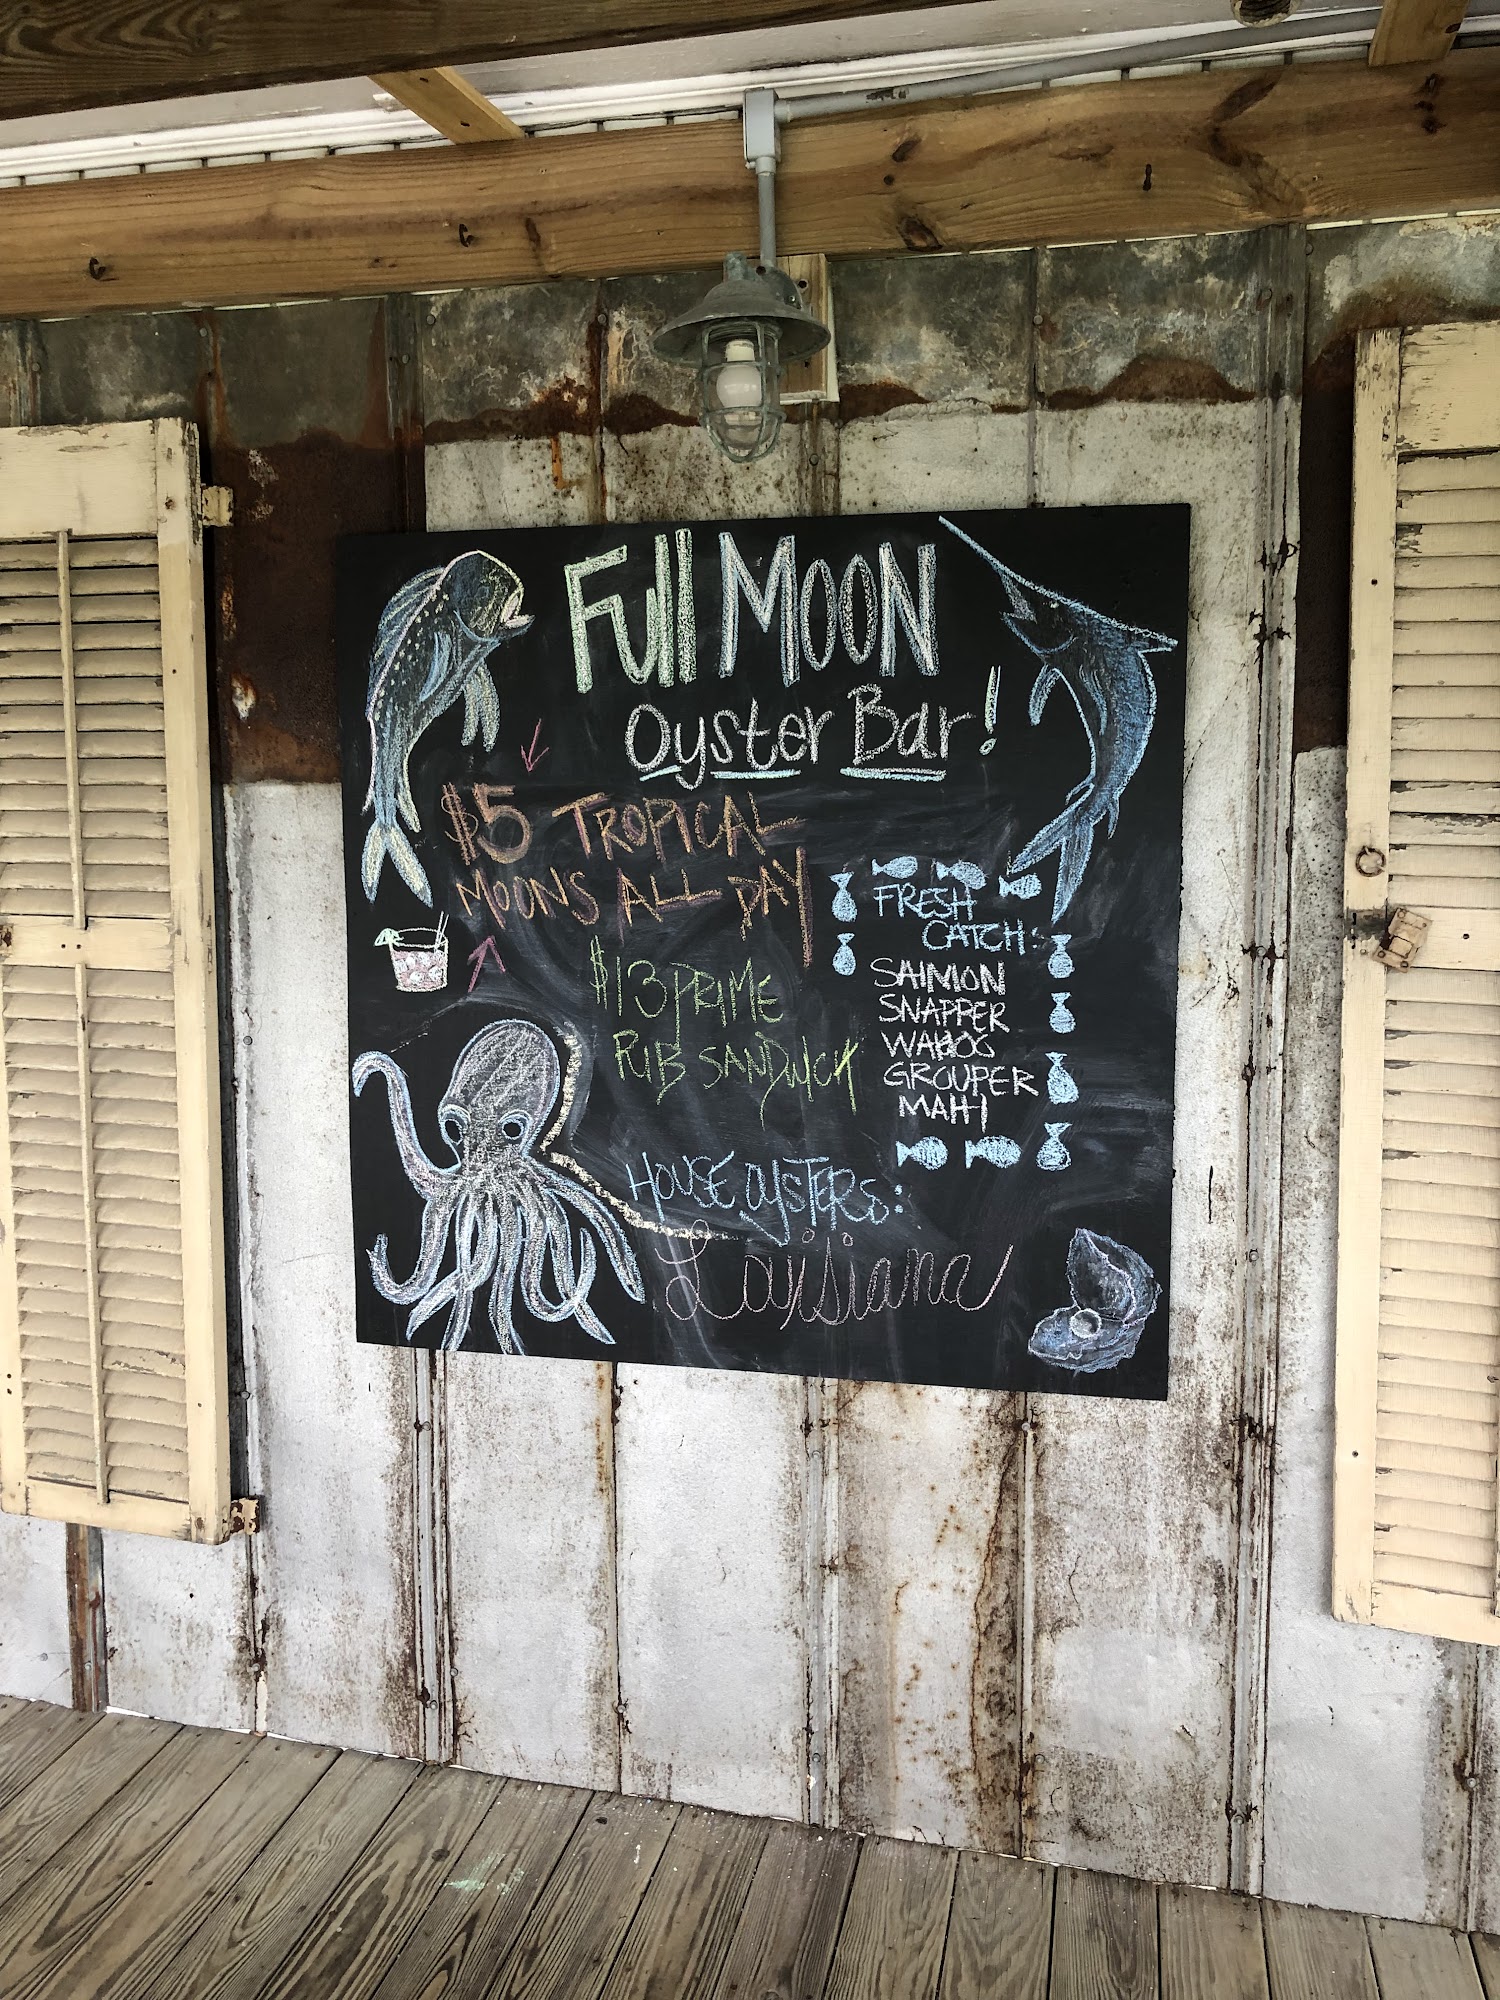 Full MOON
Oyster Bar!
$5 TROPICAL
MOONS ALL DAY
$13 PRIME
RIB SANDWICH
FRESH
CATCH:
SALMON
SNAPPER
WAHOO
GROUPER
MAHI
HOUSE OYSTERS:
Louisiana